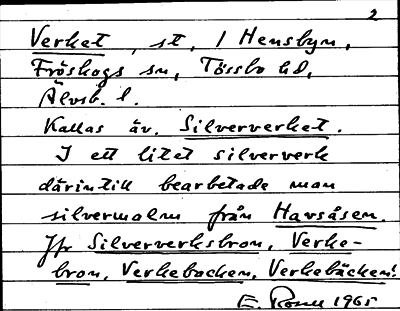 2
Verket, st, / Hensbyn,
Fröskogs sn, Tössbo hd,
Älvsb. l.
Kallas äv. Silververket.
I ett litet silververk
därintill bearbetade man
silvermalm från Havsåsen.
Jfr Silververksbron, Verke-
bron, Verkebacken, Verkebäcken!
E. 1965